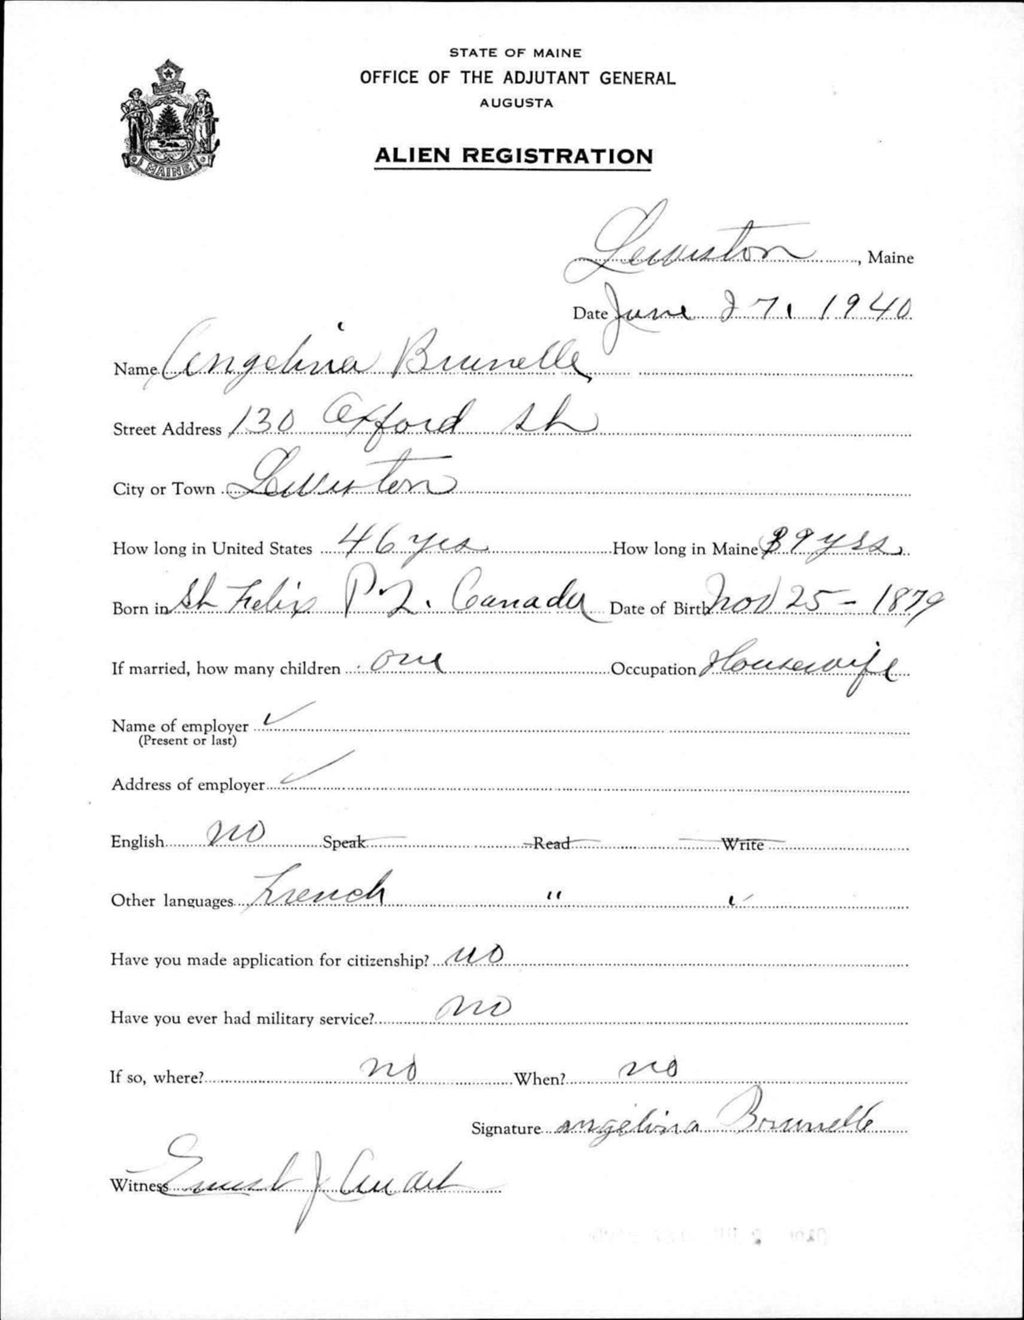 STATE OF MAINE
OFFICE OF THE ADJUTANT GENERAL
AUGUSTA
ALIEN REGISTRATION
MAINE
Lewiston, Maine
Date June 27, 1940
Name Angelina Brunelle
Street Address 130 Oxford St
City or Town Lewiston
How long in United States 46 yrs How long in Maine 39 yrs
Born in St Felix P.Q. Canada Date of Birth Nov 25 - 1879
If married, how many children one Occupation Housewife
Name of employer ✓
(Present or last)
Address of employer ✓
English no Speak Read Write
Other languages French " "
Have you made application for citizenship? no
Have you ever had military service? no
If so, where? no When? no
Signature Angélina Brunelle
Witness Ernest J